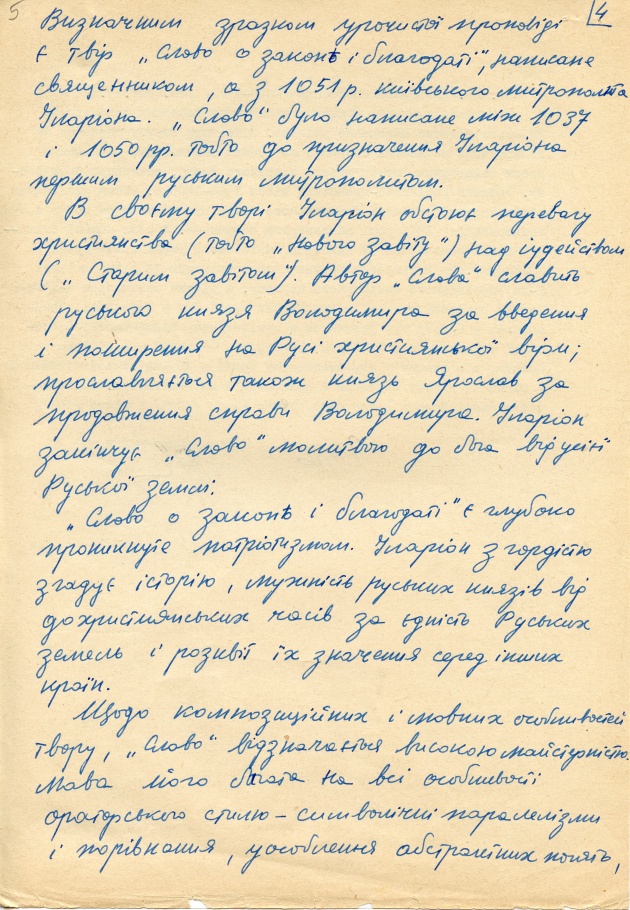 5
4
Визначним зразком урочистої проповіді
є твір „Слово о законѣ і благодаті", написане
священником, а з 1051 р. київського митрополита
Іларіона. „Слово" було написане між 1037
і 1050 рр. тобто до призначення Іларіона
першим руським митрополитом.
В своєму творі Іларіон обстоює перевагу
християнства (тобто „нового завіту") над іудейством
(„Старим завітом"). Автор „Слова" славить
руського князя Володимира за введення
і поширення на Русі християнської віри;
прославляється також князь Ярослав за
продовження справи Володимира. Іларіон
закінчує „Слово" молитвою до бога від усієї
Руської землі.
„Слово о законѣ і благодаті" є глубоко
проникнуте патріотизмом. Іларіон з гордістю
згадує історію, мужність руських князів від
дохристиянських часів за єдність Руських
земель і розквіт їх значення серед інших
країн.
Щодо композиційних і мовних особливостей
твору, „Слово" відзначається високою майстерністю.
Мова його багата на всі особливості
ораторського стилю – символічні паралелізми
і порівняння, уособлення абстрактних понять,